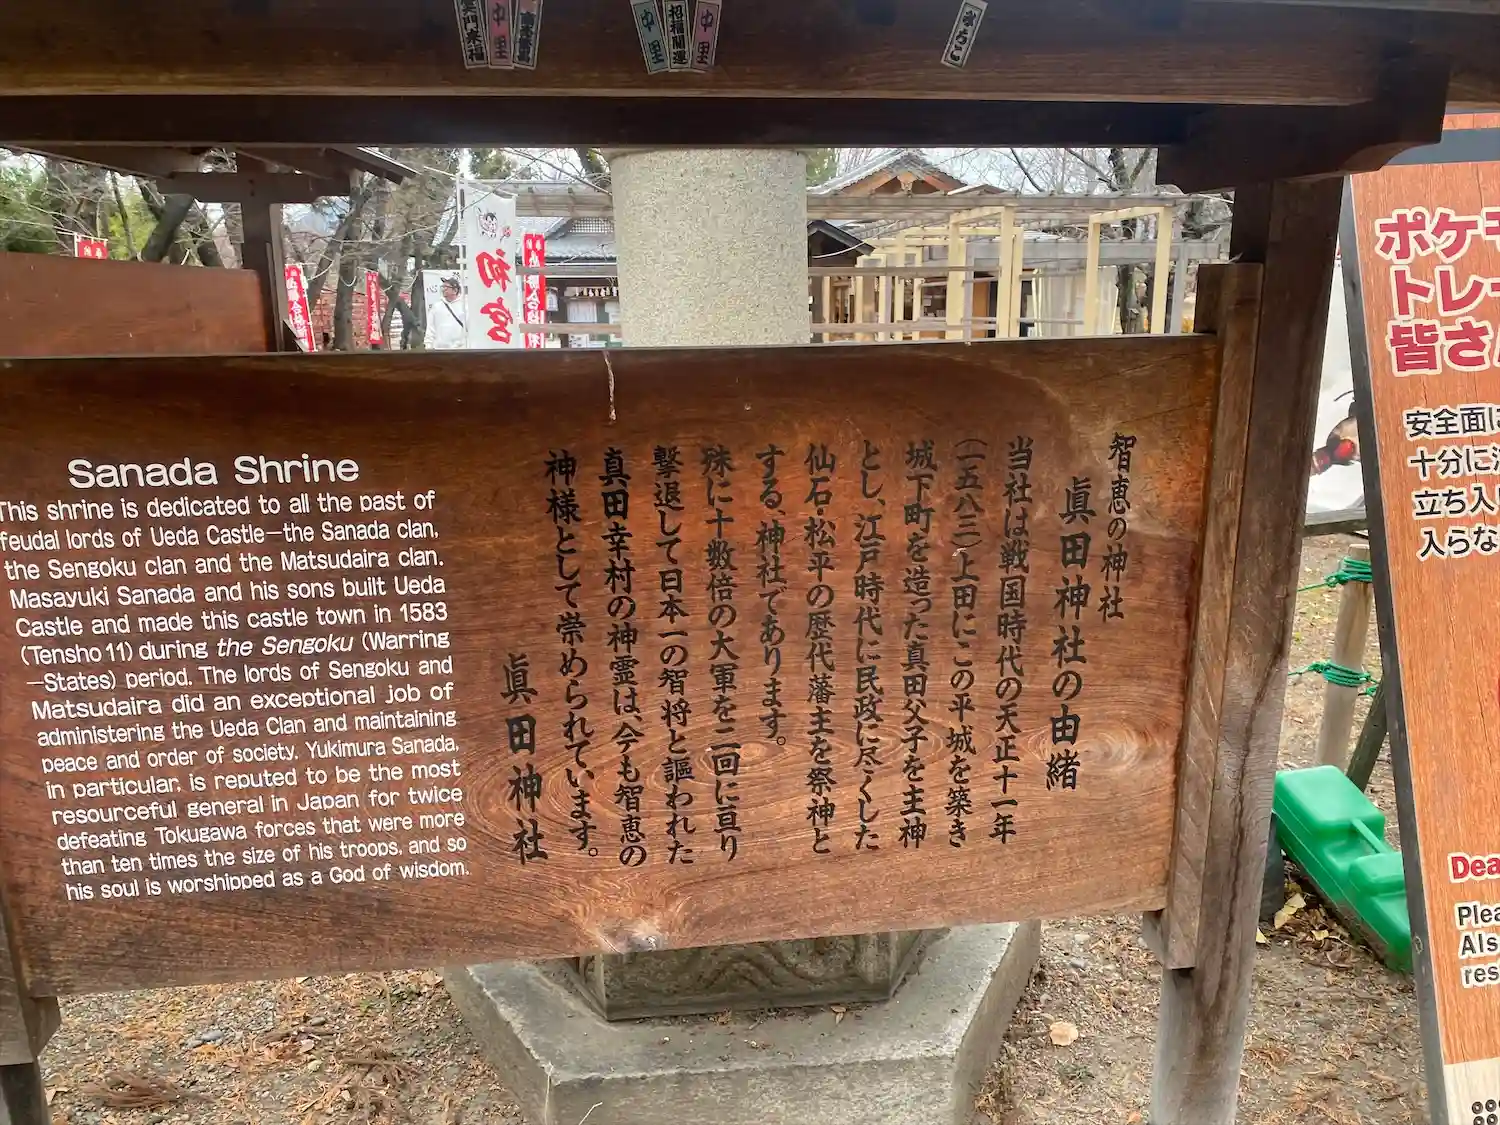 招福開運
中里
中里
中里
初宮
Sanada Shrine
This shrine is dedicated to all the past of
feudal lords of Ueda Castle—the Sanada clan,
the Sengoku clan and the Matsudaira clan.
Masayuki Sanada and his sons built Ueda
Castle and made this castle town in 1583
(Tensho 11) during the Sengoku (Warring
—States) period. The lords of Sengoku and
Matsudaira did an exceptional job of
administering the Ueda Clan and maintaining
peace and order of society. Yukimura Sanada,
in particular, is reputed to be the most
resourceful general in Japan for twice
defeating Tokugawa forces that were more
than ten times the size of his troops, and so
his soul is worshipped as a God of wisdom.
智恵の神社
眞田神社の由緒
当社は戦国時代の天正十一年
(一五八三)上田にこの平城を築き
城下町を造った真田父子を主神
とし、江戸時代に民政に尽くした
仙石・松平の歴代藩主を祭神と
する、神社であります。
殊に十数倍の大軍を二回に亘り
撃退して日本一の智将と謳われた
真田幸村の神霊は、今も智恵の
神様として崇められています。
眞田神社
ポケモ
トレー
皆さ
安全面に
十分に
立ち入
入らな
Dea
Plea
Als
res